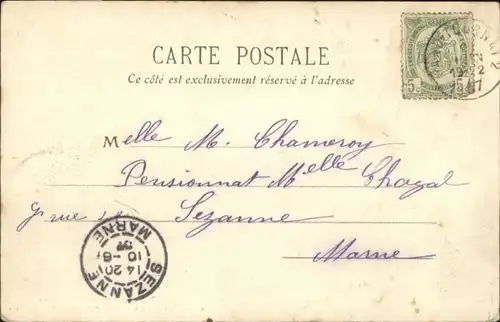 CARTE POSTALE
Ce côté est exclusivement réservé à l'adresse
5c 5c
Melle M. Chameroy
Pensionnat Melle Chagal
rue
Sezanne
Marne
SEZANNE MARNE
14 20
10 -6